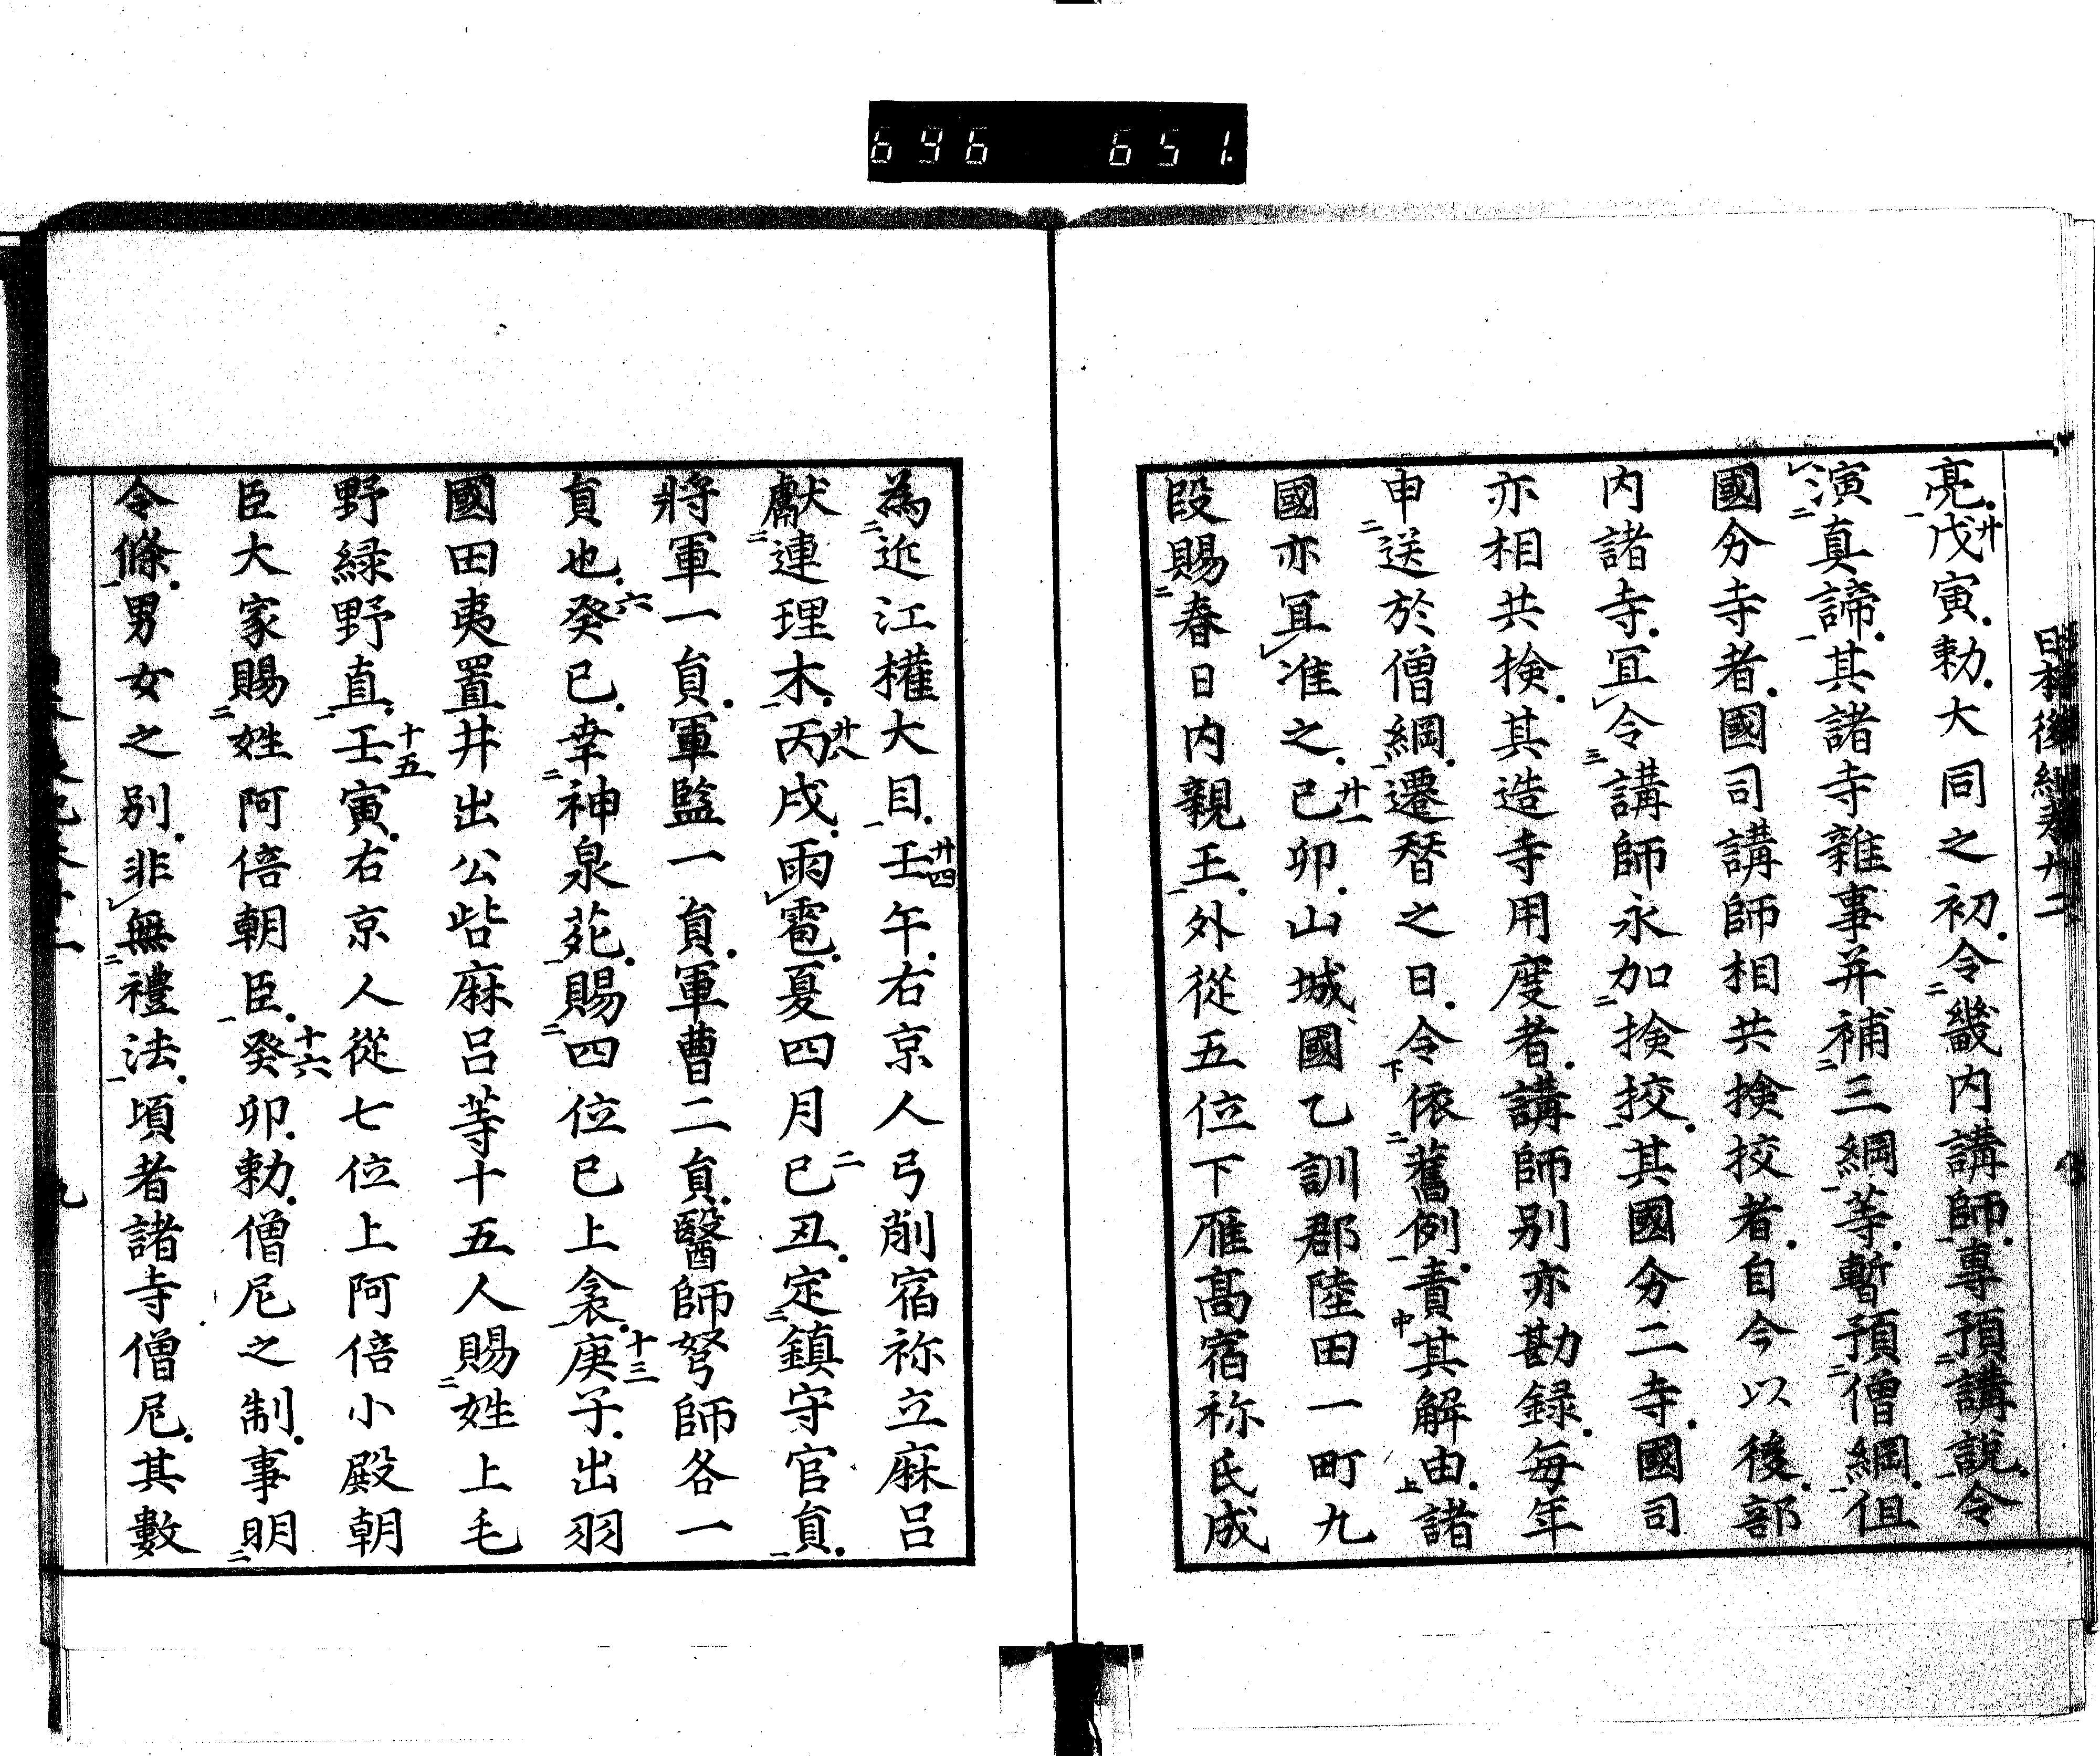 696 651
日本後紀卷十二
亮戊寅勅大同之初令畿内講師專預講説令
演真諦其諸寺雜事并補三綱等暫預僧綱但
國分寺者國司講師相共檢挍者自今以後部
内諸寺冝令講師永加檢挍其國分二寺國司
亦相共檢其造寺用度者講師别亦勘録毎年
申送於僧綱遷替之日令依舊例責其解由諸
國亦冝准之己卯山城國乙訓郡陸田一町九
段賜春日内親王外從五位下雁髙宿祢氏成
為近江權大目壬午右京人弓削宿祢立麻呂
獻連理木丙戌雨雹夏四月己丑定鎮守官負
將軍一負軍監一負軍曹二負醫師弩師各一
負也癸巳幸神泉苑賜四位已上衾庚子出羽
國田夷置井出公呰麻呂等十五人賜姓上毛
野緑野直壬寅右京人從七位上阿倍小殿朝
臣大家賜姓阿倍朝臣癸卯勅僧尼之制事明
令條男女之别非無禮法頃者諸寺僧尼其數
九